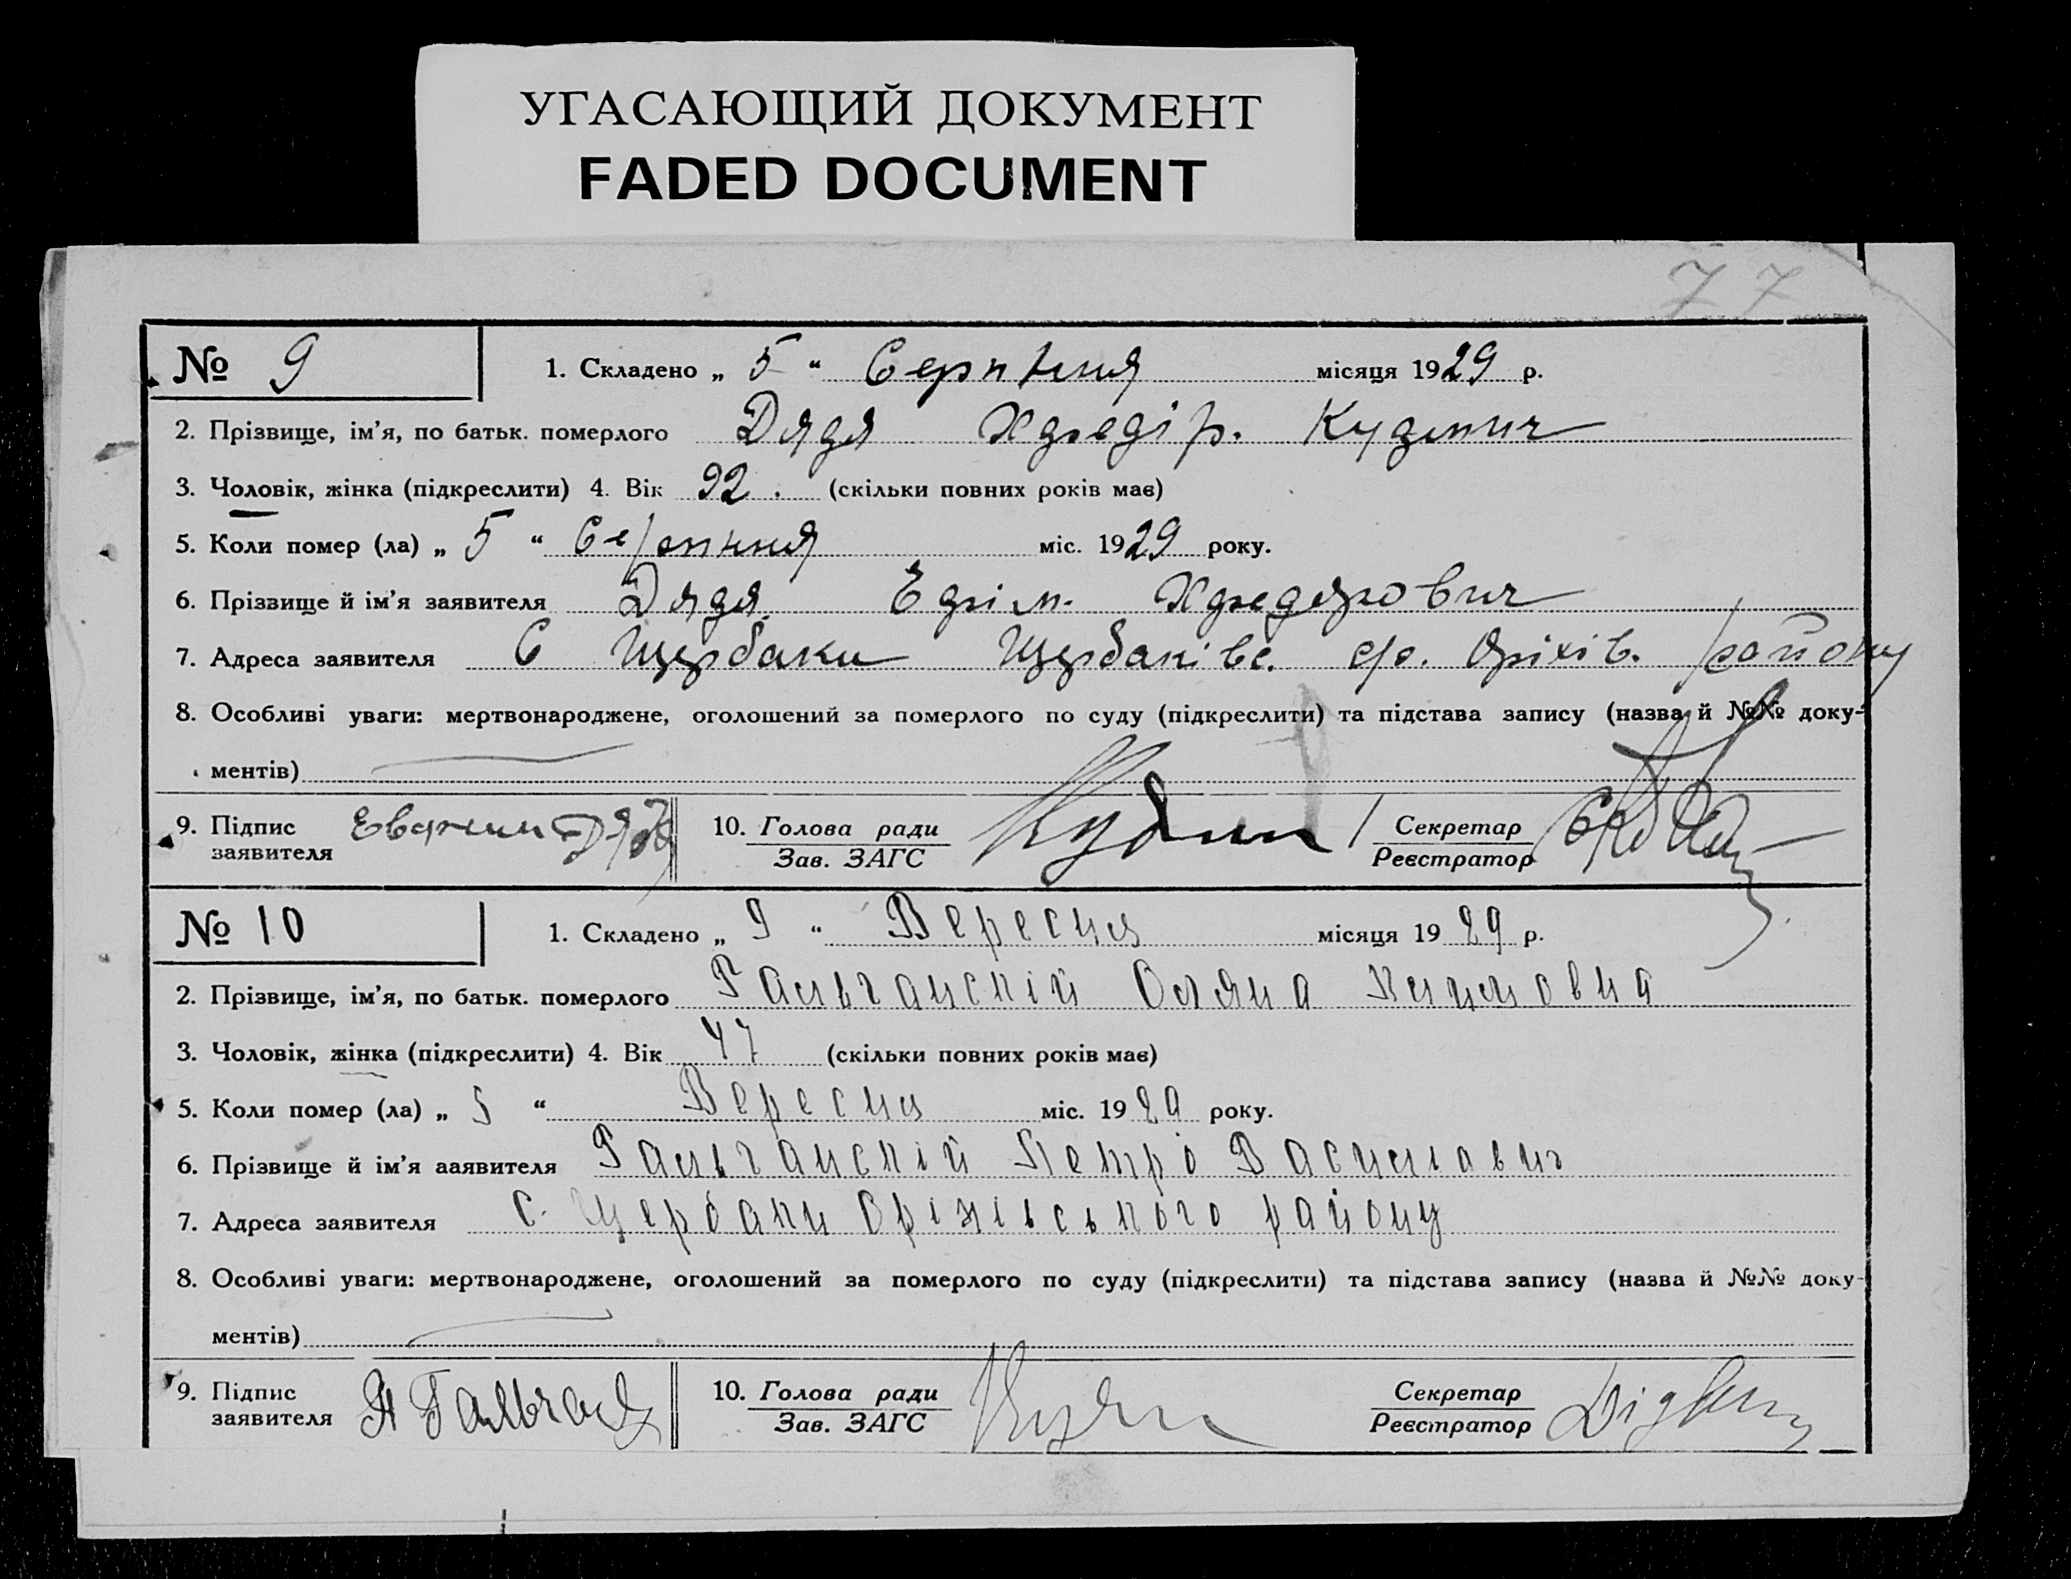 УГАСАЮЩИЙ ДОКУМЕНТ
FADED DOCUMENT
77
№ 9 1. Складено „ 5 “ Серпня місяця 1929 р.
2. Прізвище, ім’я, по батьк. померлого Дядя
3. Чоловік, жінка (підкреслити) 4. Вік 92. (скільки повних років має)
5. Коли помер (ла) „ 5 “ Серпння міс. 1929 року.
6. Прізвище й ім’я заявителя Дядя
7. Адреса заявителя С Щербаки Щербаківс. с/р. Оріхів. району
8. Особливі уваги: мертвонароджене, оголошений за померлого по суду (підкреслити) та підстава запису (назва й №№ доку-
ментів)
9. Підпис 10. Голова ради Секретар
заявителя Зав. ЗАГС Реєстратор
№ 10 1. Складено „ 9 “ Вересня місяця 1929 р.
2. Прізвище, ім’я, по батьк. померлого Гальчанскій Оляна
3. Чоловік, жінка (підкреслити) 4. Вік 47 (скільки повних років має)
5. Коли помер (ла) „ 5 “ Вересня міс. 1929 року.
6. Прізвище й ім’я ааявителя Гальчанскій Петро Василович
7. Адреса заявителя С. Щербаки Оріхівського району
8. Особливі уваги: мертвонароджене, оголошений за померлого по суду (підкреслити) та підстава запису (назва й №№ доку-
ментів)
9. Підпис 10. Голова ради Секретар
заявителя Зав. ЗАГС Реєстратор